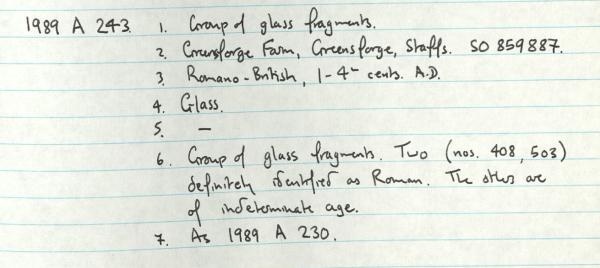 1989 A 243. 1. Group of glass fragments.
2. Greensforge Farm, Greensforge, Staffs. SO 859887.
3. Romano-British, 1-4th cents. A.D.
4. Glass.
5. —
6. Group of glass fragments. Two (nos. 408, 503)
definitely identified as Roman. The others are
of indeterminate age.
7. As 1989 A 230.